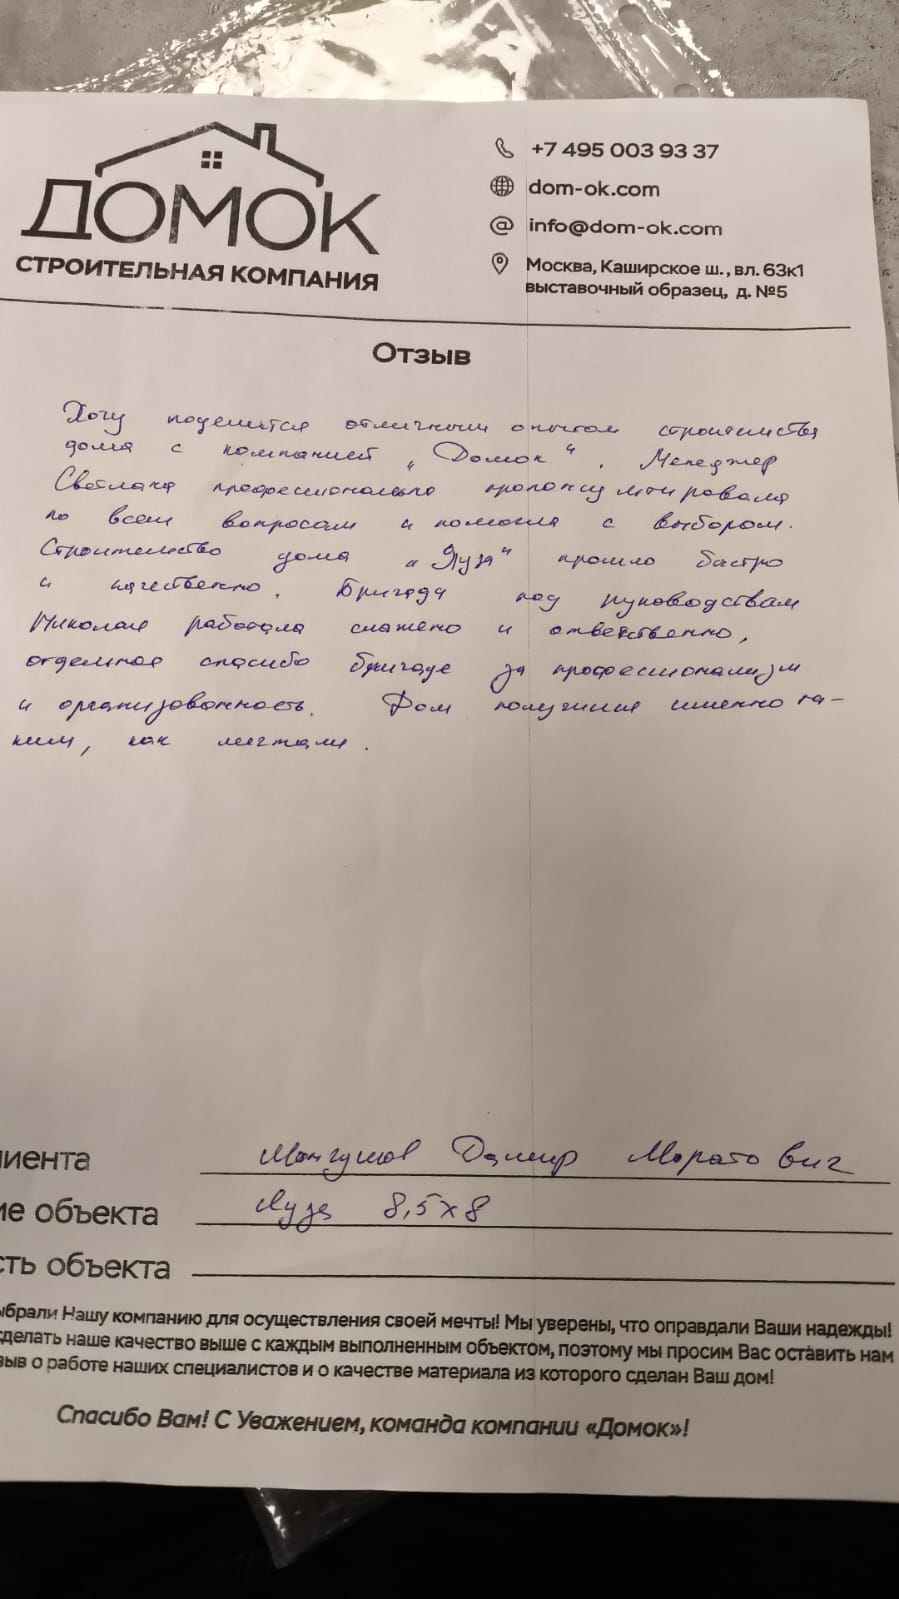 ДОМОК
СТРОИТЕЛЬНАЯ КОМПАНИЯ
+7 495 003 93 37
dom-ok.com
info@dom-ok.com
Москва, Каширское ш., вл. 63к1
выставочный образец, д. №5
Отзыв
Хочу поделится отличным опытом строительства
дома с компанией „Домок“. Менеджер
Светлана профессионально проконсультировала
по всем вопросам и помогла с выбором.
Строительство дома „Яуза“ прошло быстро
и качественно. Бригада под руководствам
Николая работала слажено и ответственно,
отдельное спасибо бригаде за профессионализм
и организованность. Дом получился именно та-
ким, как мечтали.
иента Мангушов Дамир Маратович
ие объекта Яуза 8,5х8
сть объекта
ыбрали Нашу компанию для осуществления своей мечты! Мы уверены, что оправдали Ваши надежды!
сделать наше качество выше с каждым выполненным объектом, поэтому мы просим Вас оставить нам
зыв о работе наших специалистов и о качестве материала из которого сделан Ваш дом!
Спасибо Вам! С Уважением, команда компании «Домок»!